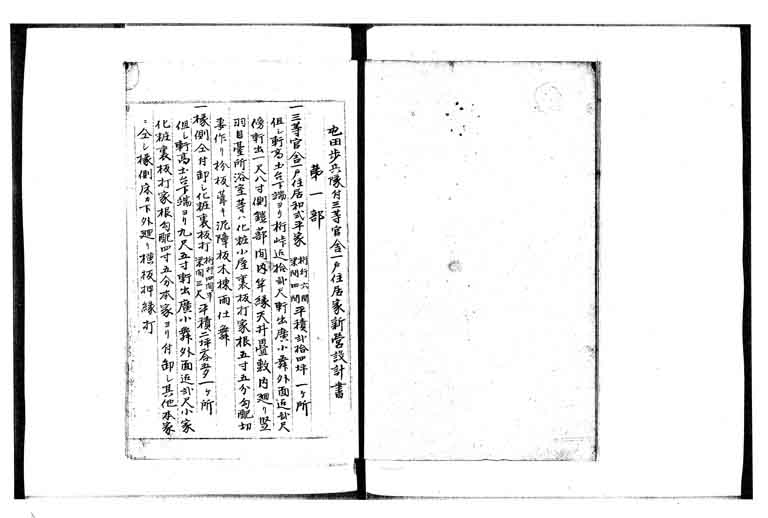 屯田歩兵隊付三等官舎一戸住居家新営設計書
第一部
一三等官舎一戸住居和式平家 桁行六間 梁間四間 平積弐拾四坪 一ケ所
但シ軒高土台下端ヨリ桁峠迄拾弐尺軒出廣小舞外面迄弐尺
傍軒出一尺八寸側鎧蔀間内竿縁天井畳敷内廻リ竪
羽目臺所浴室等ハ化粧小屋裏板打家根五寸五分勾配切
妻作リ柾板葺キ泥障板木棟雨仕舞
一椽側仝付卸シ化粧裏板打 梁間三尺 平積二坪 一ケ所
但シ軒高土台下端ヨリ九尺五寸軒出廣小舞外面迄弐尺小家
化粧裏板打家根勾配四寸五分本家ヨリ付卸シ其他本家
ニ仝シ椽側床カ下外廻リ横板押縁打